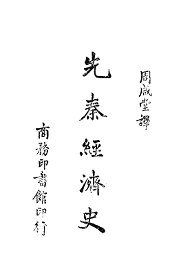 周咸堂譯
先秦經濟史
商務印書館印行